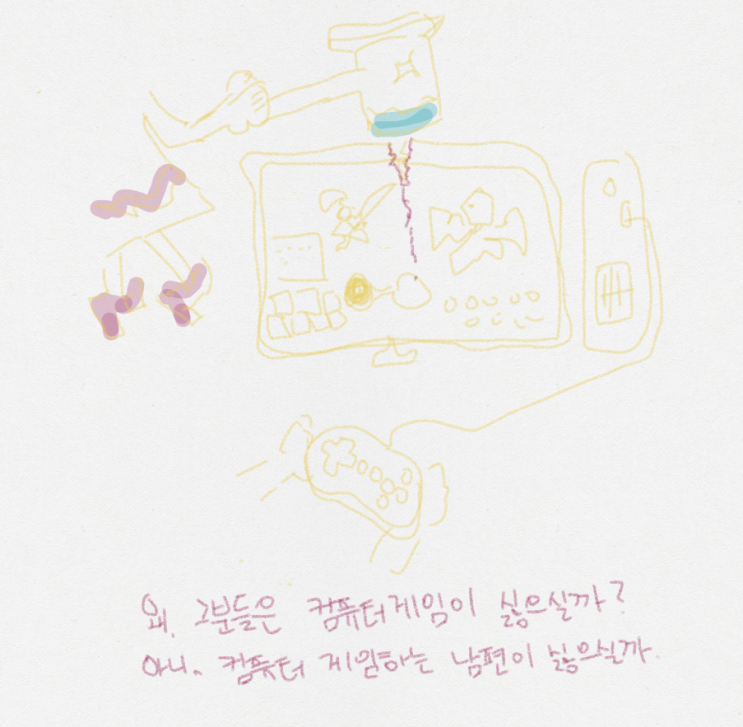 왜. 그분들은 컴퓨터게임이 싫으실까?
아니.. 컴퓨터 게임하는 남편이 싫으실까.